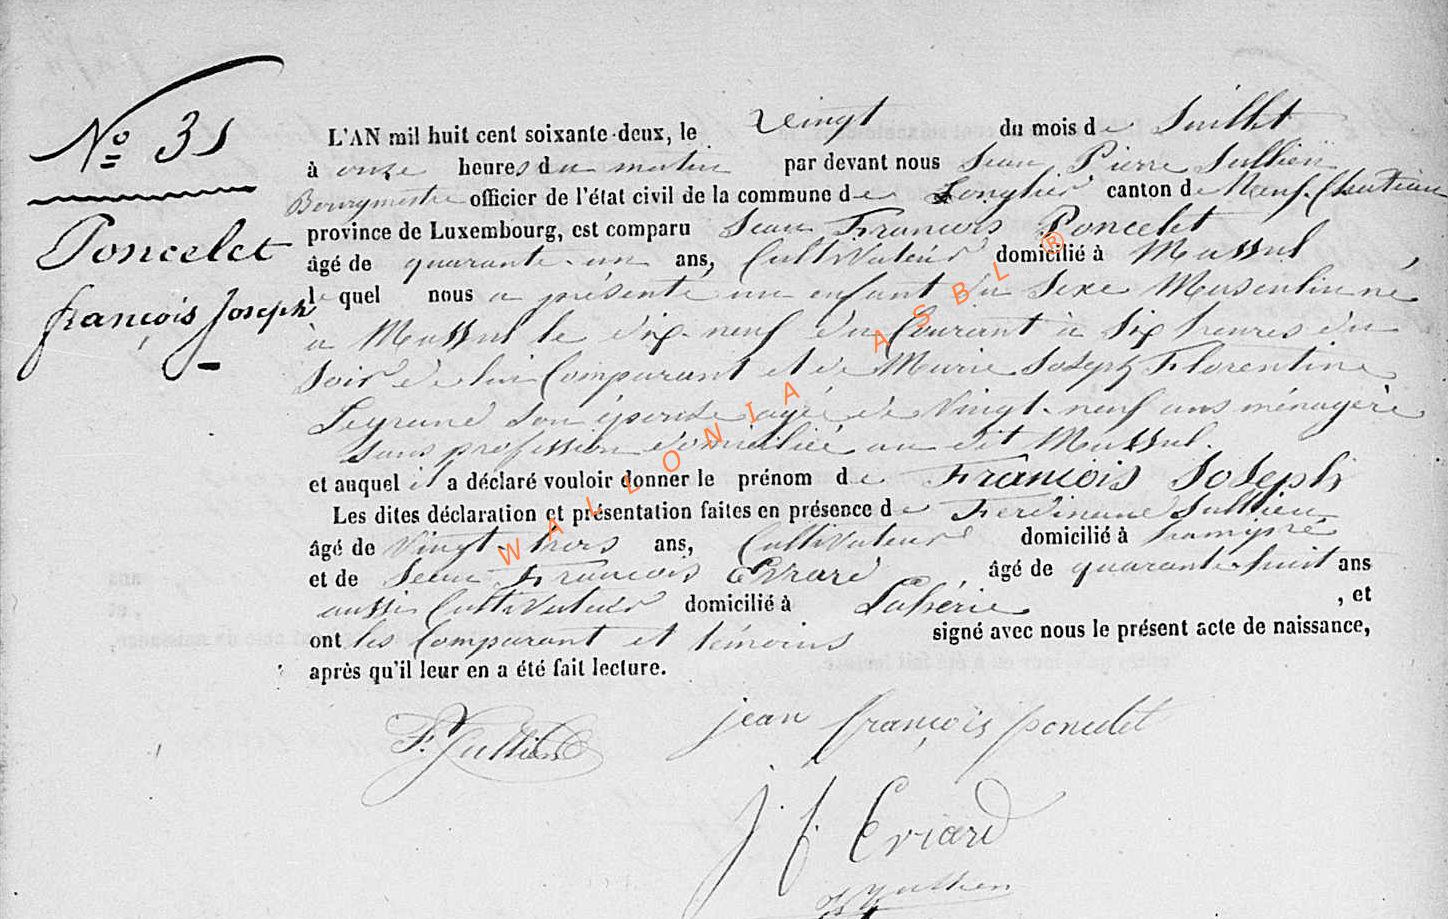 Nº 31
Poncelet
françois Joseph
L'AN mil huit cent soixante-deux, le vingt du mois de Juillet
à onze heures du matin par devant nous Jean Pierre Jullien
Bourgmestre officier de l'état civil de la commune de Longlier canton de Neuf-Chateau
province de Luxembourg, est comparu Jean François Poncelet
âgé de quarante-un ans, Cultivateur domicilié à Massul,
lequel nous a présenté un enfant du Sexe Masculin né
à Massul le dix-neuf du Courant à Six heures du
Soir de lui Comparant et de Marie Joseph Florentine
Legrand son épouse agée de Vingt-neuf ans ménagère
Sans profession domiciliée au dit Massul.
et auquel il a déclaré vouloir donner le prénom de François Joseph
Les dites déclaration et présentation faites en présence de Ferdinand Jullien
âgé de Vingt-trois ans, Cultivateur domicilié à
et de Jean-François Evrard, âgé de quarante-huit ans
aussi Cultivateur domicilié à Lahérie, et
ont les Comparant et témoins signé avec nous le présent acte de naissance,
après qu'il leur en a été fait lecture.
F. Jullien
jean françois poncelet
j. f. Evrard
Jullien
WALLONIA ASBL ®